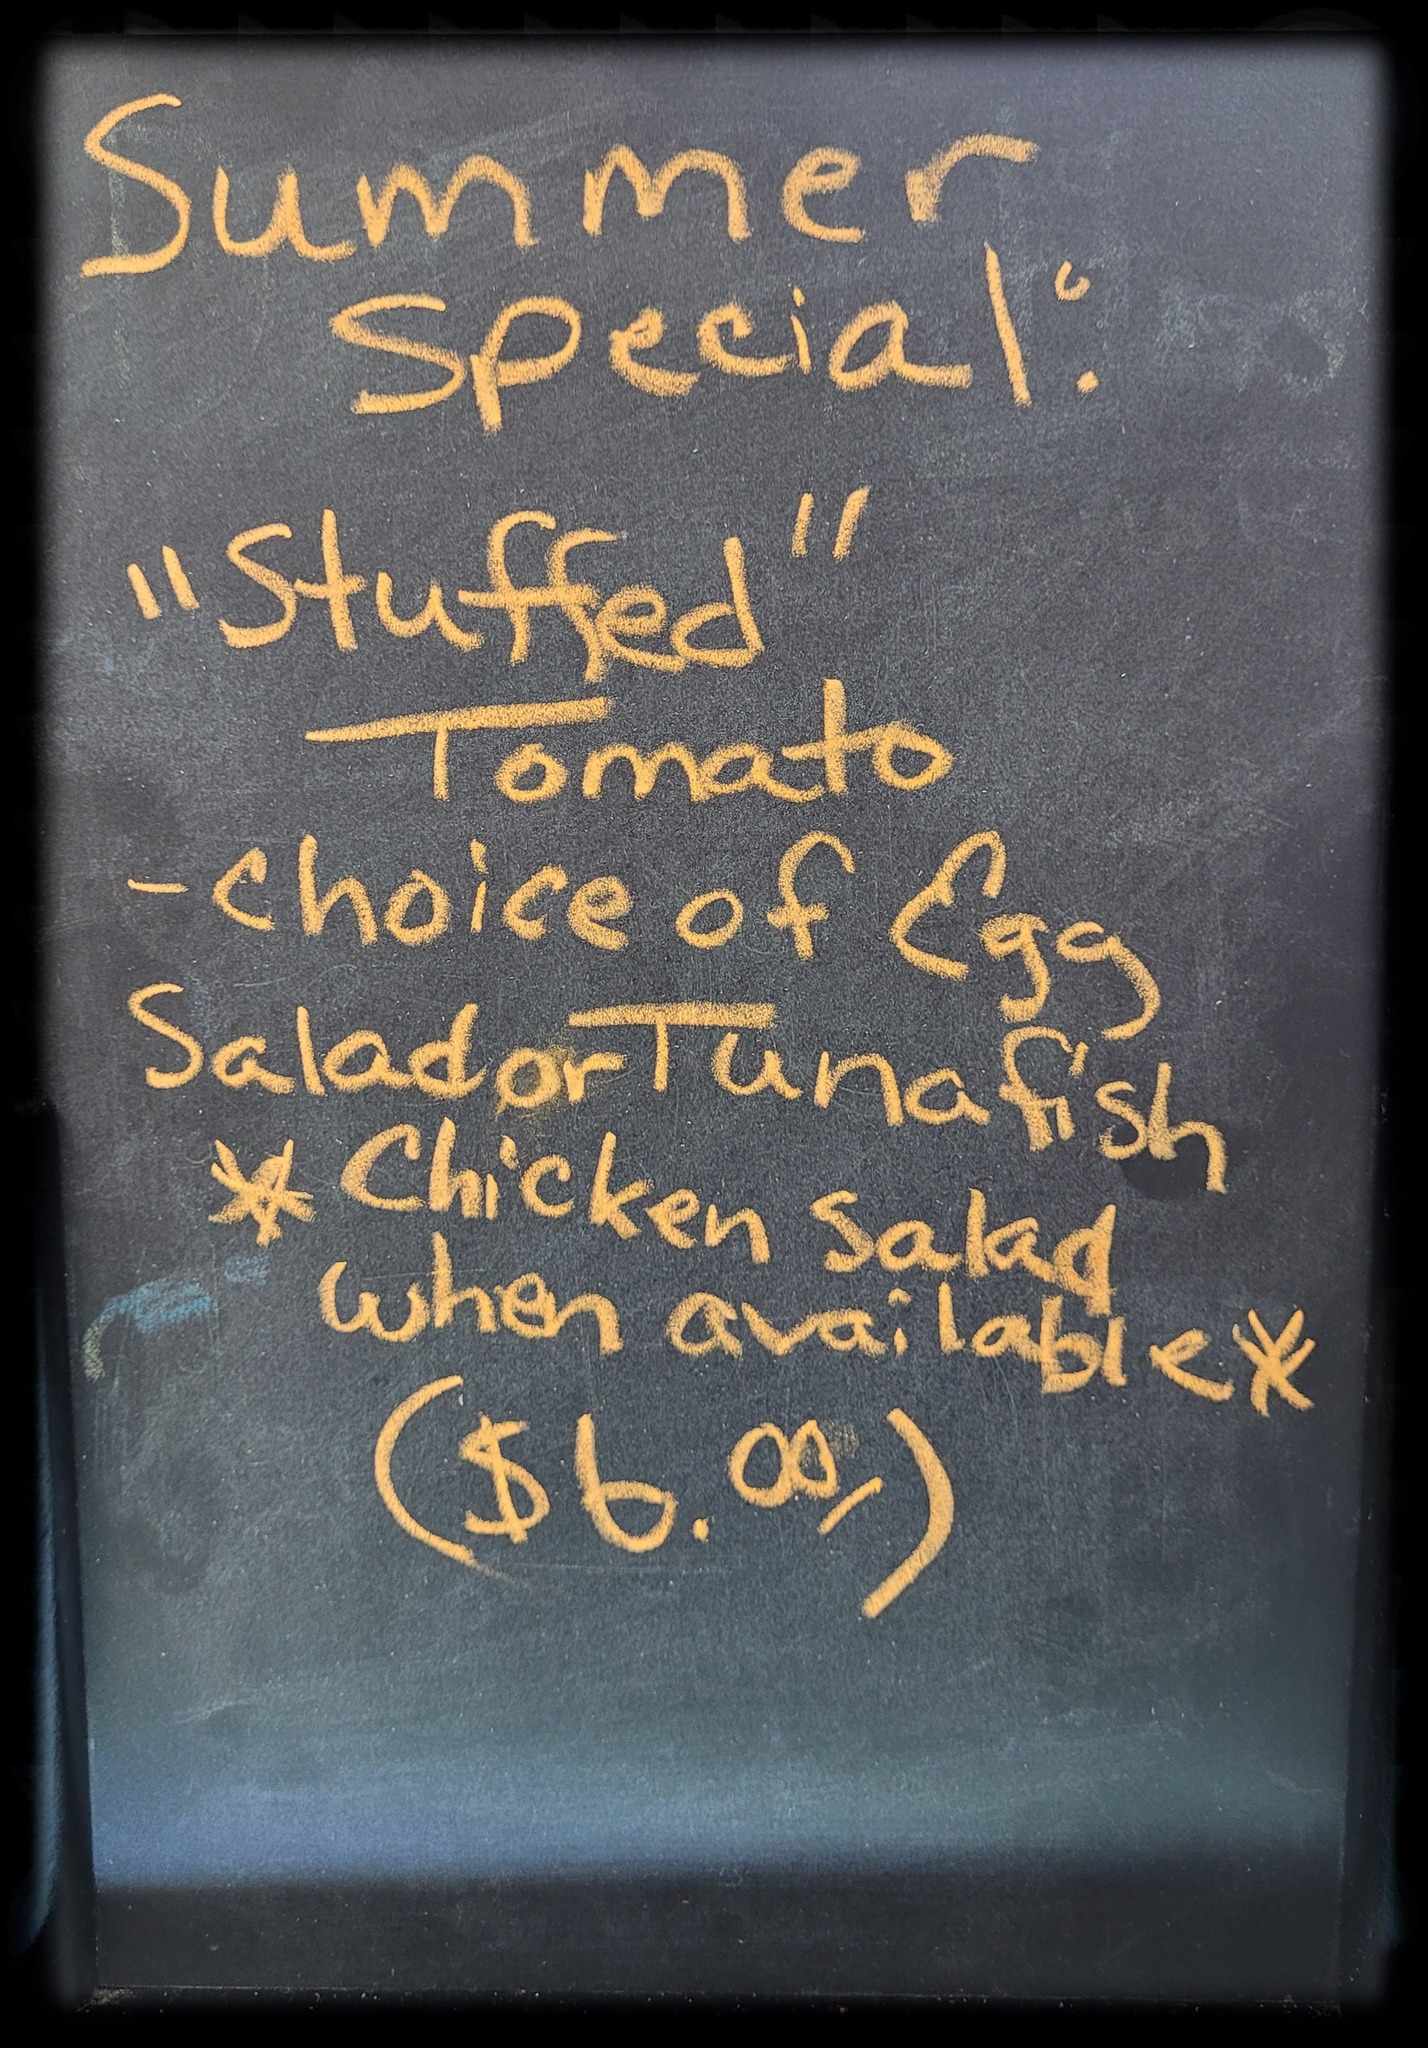 Summer
special:
"Stuffed"
Tomato
-choice of Egg
Salad or Tunafish
* Chicken Salad
when available *
($6.00)